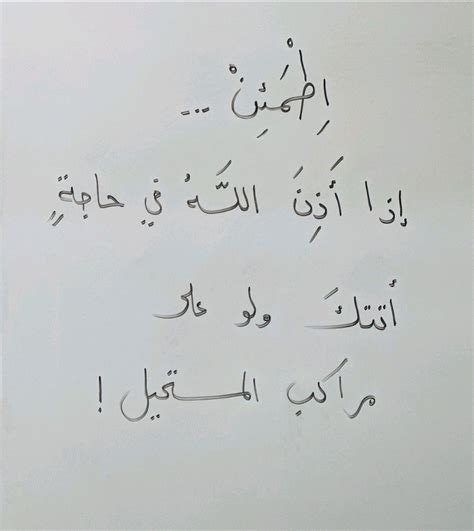 اِطْمَئِنْ ...
إذا أَذِنَ اللَّهُ في حاجةٍ
أتتكَ ولو على
مراكب المستحيل !